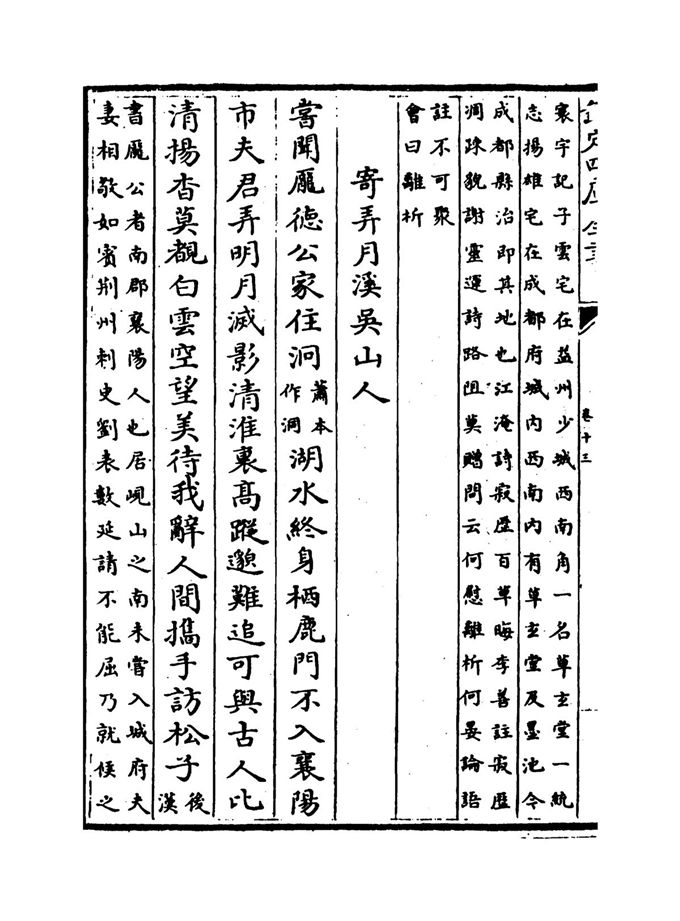 欽定四庫全書
卷十三
寰宇記子雲宅在益州少城西南角一名草玄堂一統
志揚雄宅在成都府城內西南內有草玄堂及墨池今
成都縣治即其地也江淹詩寂歷百草晦李善註寂歷
凋疎貌謝靈運詩路阻莫贈問云何慰離析何晏論語
註不可聚
會曰離析
寄弄月溪吳山人
嘗聞龎德公家住泂蕭本作洞湖水終身栖鹿門不入襄陽
市夫君弄明月滅影清淮裏高蹤邈難追可與古人比
清揚杳莫覩白雲空望美待我辭人間攜手訪松子後漢
書龎公者南郡襄陽人也居峴山之南未嘗入城府夫
妻相敬如賓荆州刺史劉表數延請不能屈乃就候之